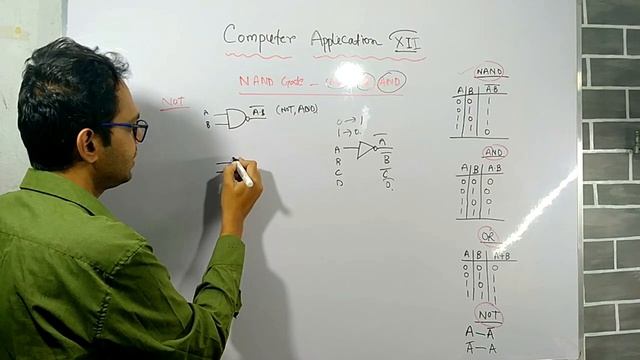 Computer Application XII
NAND Gate - AND
NOT
A
B
A·B (NOT, AND)
0 → 1
1 → 0
A A
B B
C C
D D
NAND
A B A·B
0 0 1
0 1 1
1 0 1
1 1 0
AND
A B A·B
0 0 0
0 1 0
1 0 0
1 1 1
OR
A B A+B
0 0 0
0 1 1
1 0 1
1 1 1
NOT
A — A̅
A̅ — A